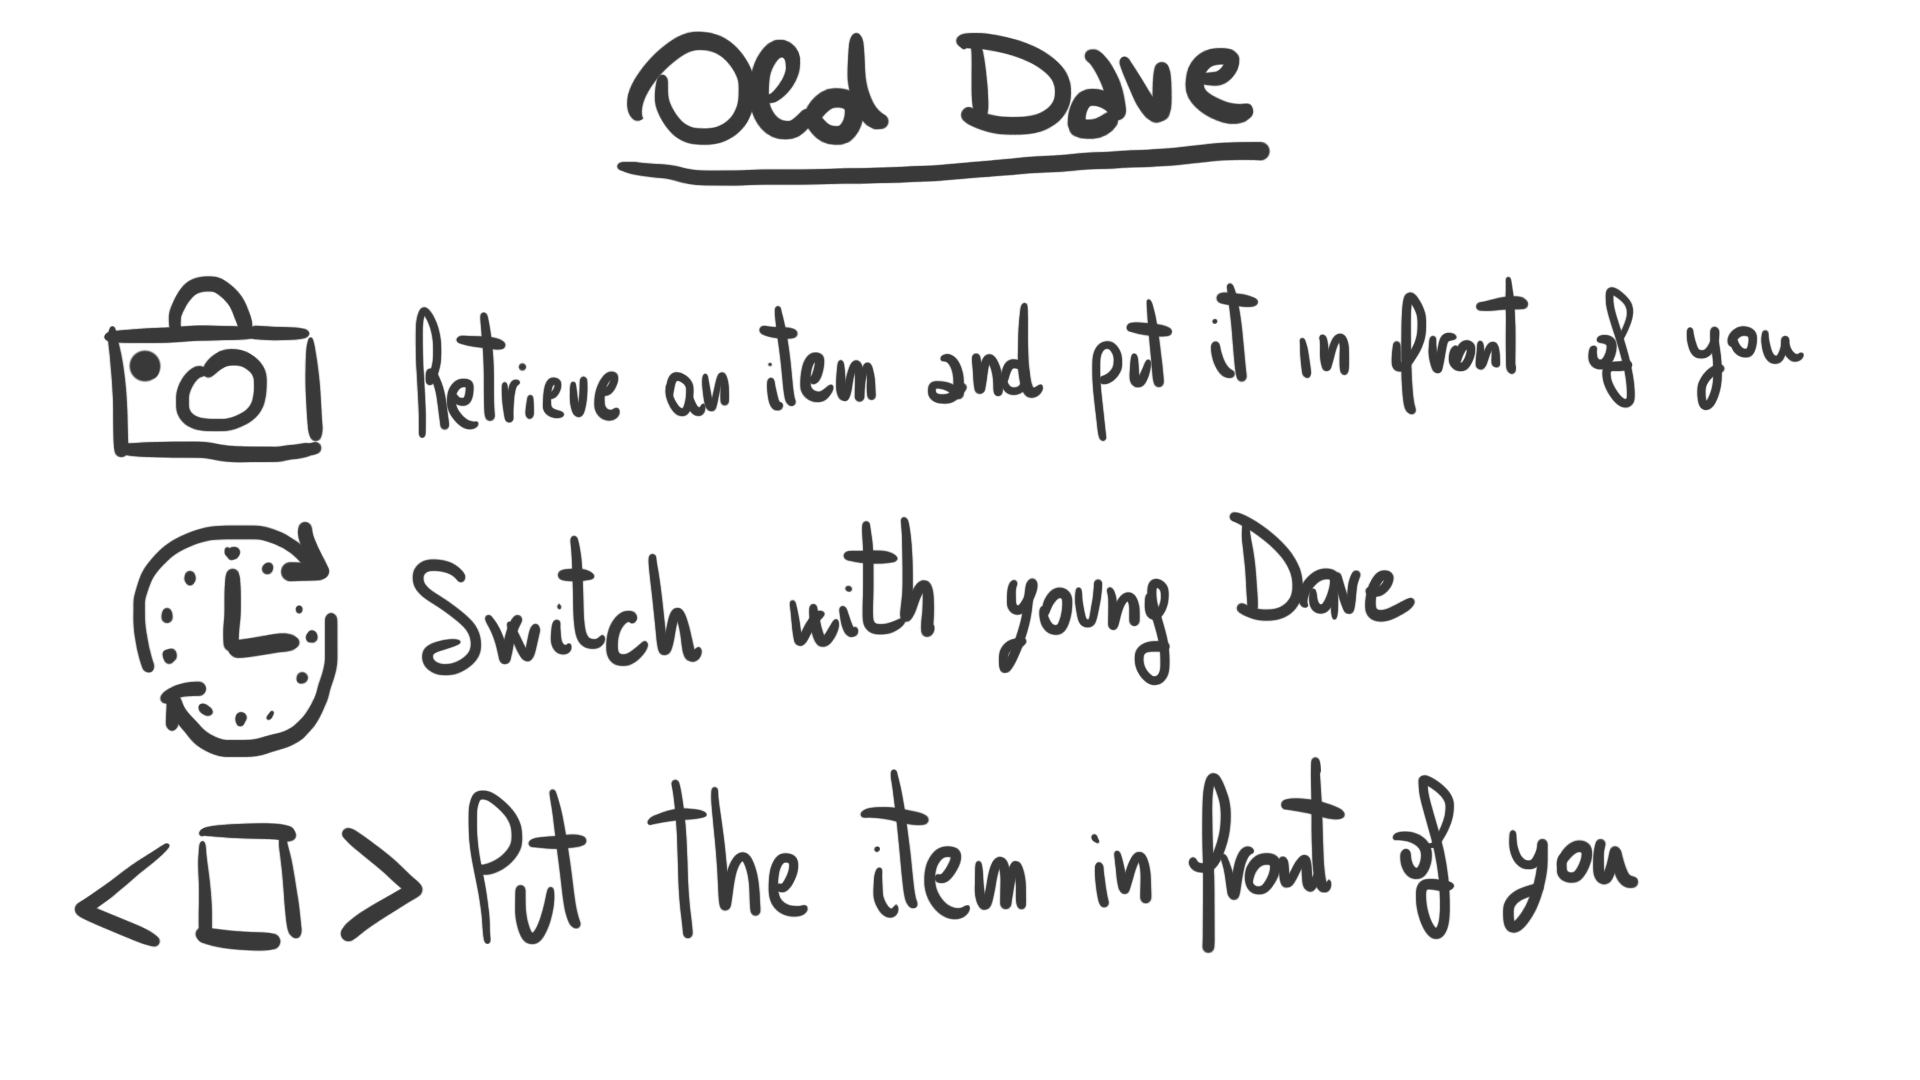 Old Dave
Retrieve an item and put it in front of you
Switch with young Dave
Put the item in front of you